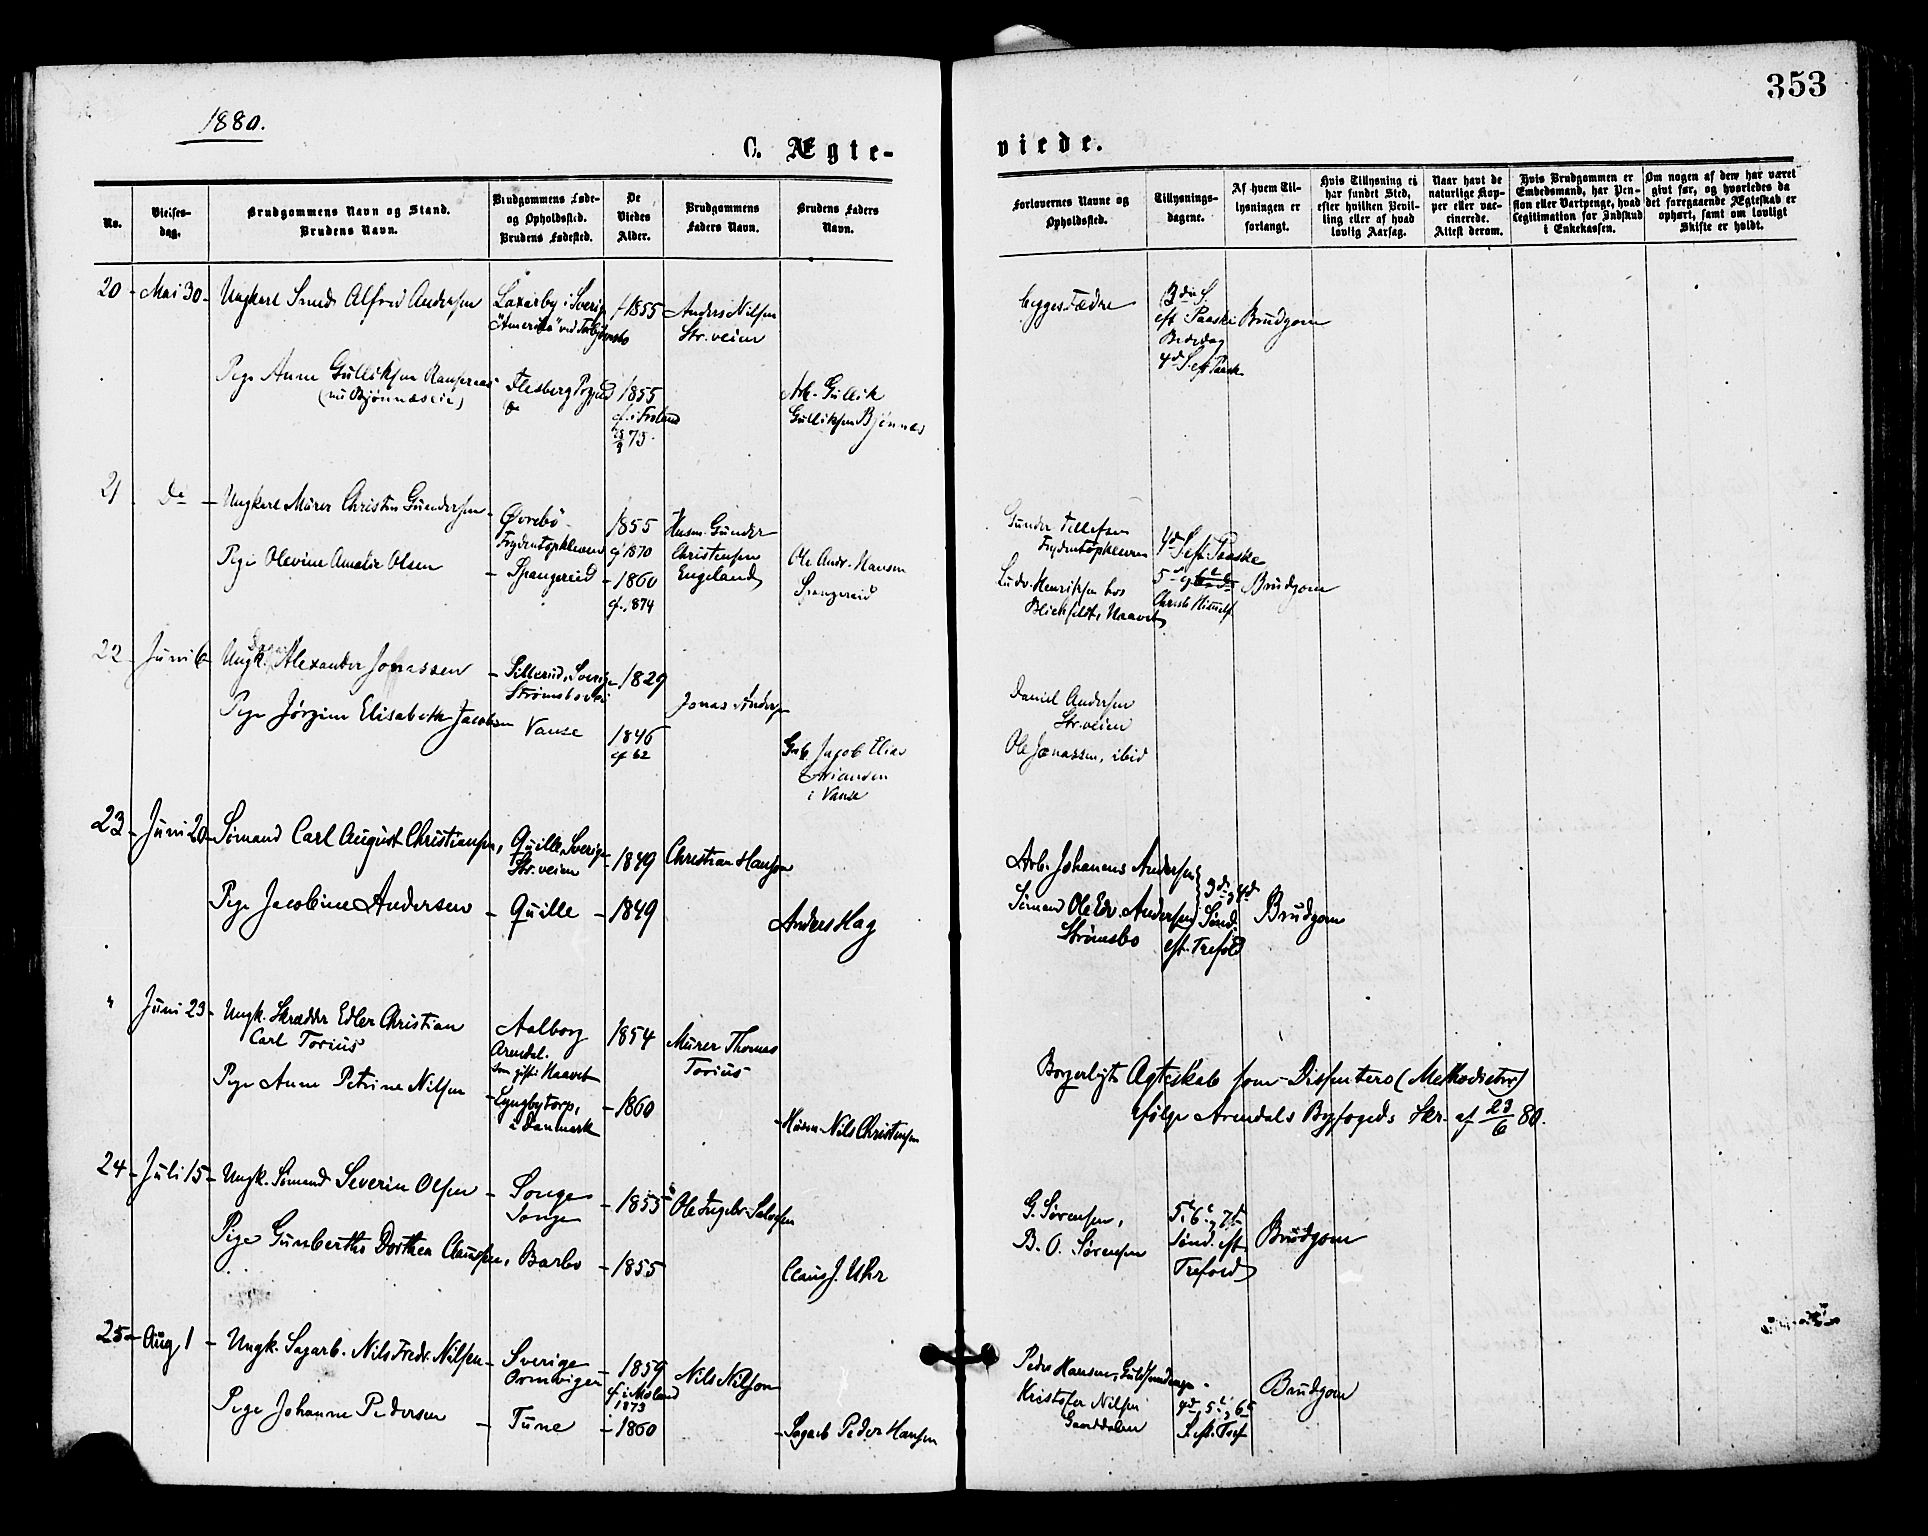 353
1880.
C. Ægte-
viede.
No.
Vielses-
dag.
Brudgommens Navn og Stand.
Brudens Navn.
Brudgommens Føde-
og Opholdssted.
Brudens Fødested.
De
Viedes
Alder.
Brudgommens
Faders Navn.
Brudens Faders
Navn.
Forlovernes Navne og
Opholdssted.
Tillysnings-
dagene.
Af hvem Til-
lysningen er
forlangt.
Hvis Tillysning ei
har fundet Sted,
efter hvilken Bevil-
ling eller af hvad
lovlig Aarsag.
Naar havt de
naturlige Kop-
per eller vac-
cinerede.
Attest derom.
Hvis Brudgommen er
Embedsmand, har Pen-
sion eller Vartpenge, hvad
Legitimation for Indskud
i Enkekassen.
Om nogen af dem har været
givt før, og hvorledes da
det foregaaende Ægteskab er
ophørt, samt om lovligt
Skifte er holdt.
20 Mai 30 Ungkarl Smed Alfred Andersen
Laxarby i Sverig
"Amerika" ved
1855
Anders Nilsen
Str.veien
Pige Anne Gulliksen
Flesberg
1855
cf. i Froland
75
Arb. Gullik
Gulliksen Bjønnes
begges Fædre
3die S.
eft. Paaske
Bededag
4de S. eft. Paask
Brudgom
21 Do Ungkarl Murer Christen Gundersen
Øvrebø
1855
cf 1870
Husm. Gunder
Christensen
Engeland
Pige Olevine Amalie Olsen
Spangereid
1860
cf. 1874
Ole Andr. Hansen
Spangereid
Gunder Tellefsen
Ludv. Henriksen hos
Blichfeldt, Naavet
4de S. eft. Paaske
5te
Christi Himmelf
Brudgom
22 Juni 6 Ungk. Alexander Jonassen
Sillerud, Sverige
Strømsbo
1829
Jonas Anders
Pige Jørgine Elisabeth Jacobsen
Vanse
1846
cf 62
Jacob Elias
Arianson
i Vanse
Daniel Andersen
Str.veien
Ole Jonassen, ibid
23 Juni 20 Sømand Carl August Christiansen,
Quille, Sverige
Str.veien
1849
Christian Hansen
Pige Jacobine Andersen
Quille
1849
Anders Hag
Arb. Johannes Andersen
Sømand Ole Edv. Andersen
Strømsbo
3die og 4de
Sønd.
eft. Trefold
Brudgom
" Juni 23 Ungk. Skrædder Edler Christian
Carl Torius
Aalborg
Arendal.
som gift: Naavet
1854
Murer Thomas
Torius
Pige Anne Petrine Nilsen
Lyngbytorp,
i Danmark
1860
Husm Nils Christensen
Borgerligt Ægteskab som Dissentere (Methodister)
ifølge Arendals Byfogeds Skr. af 23/6 80.
24 Juli 15 Ungk. Sømand Severin Olsen
Songe
Songe
1855
Ole Ingebr. Salvesen
Pige Gunberthe Dorthea Claussen,
Barbo
1855
Claus J. Uhr
G. Sørensen,
B. O. Sørensen
5, 6 og 7de
Sønd. eft.
Trefold
Brudgom
25 Aug 1 Ungk. Sagarb. Nils Fredr. Nilsen
Sverige
Ormvigen
1859
cf i Moland
1873
Nils Nilsen
Pige Johanne Pedersen
Tune
1860
Sagarb Peder Hansen
Peder Hansen, Guldsmedengen
Kristofer Nilsen
Gaarddalen
4de, 5te, 6te
S. eft. Tref
Brudgom